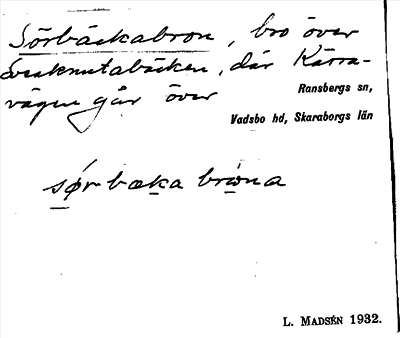 Sörbäckabron, bro över
Svaknutabäcken, där Kärra-
vägen går över
Ransbergs sn,
Vadsbo hd, Skaraborgs län
sør bæka brωna
L. MADSÉN 1932.